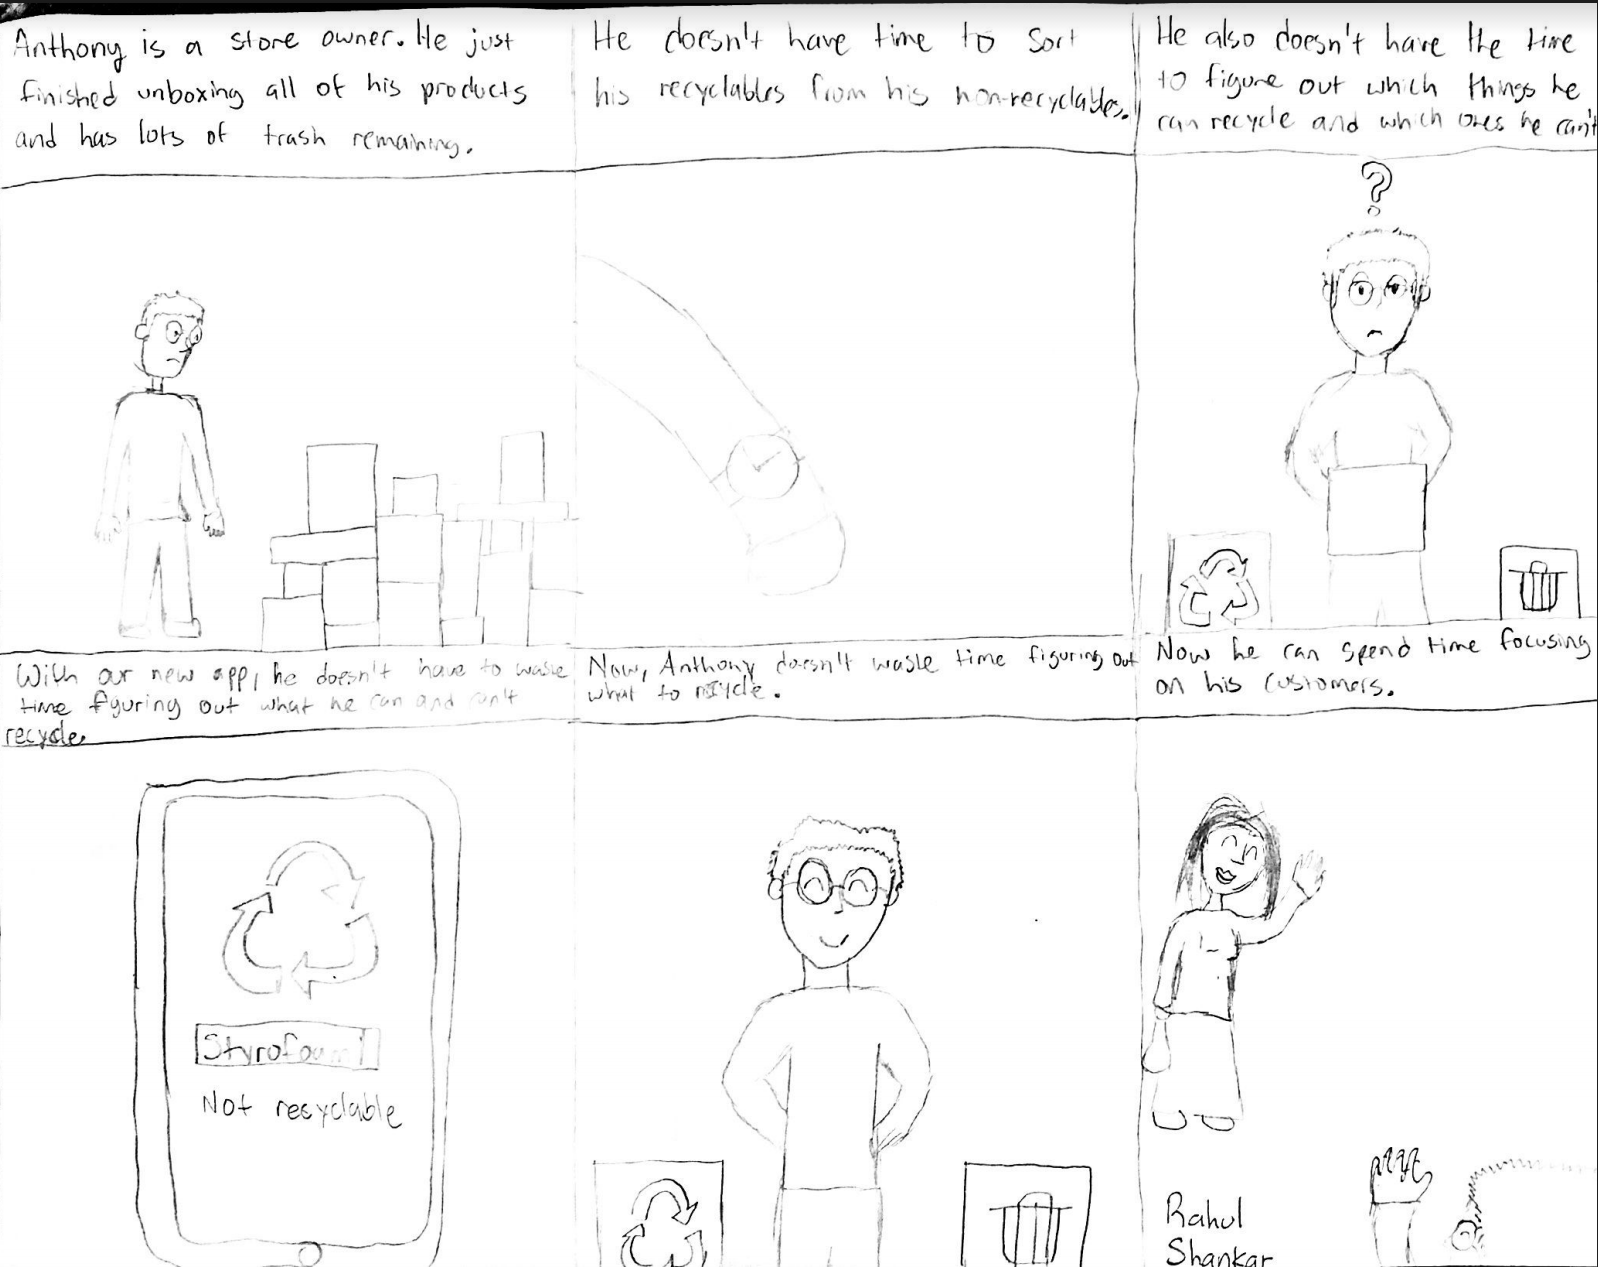 Anthony is a store owner. He just
finished unboxing all of his products
and has lots of trash remaining.
He doesn't have time to sort
his recyclables from his non-recyclables.
He also doesn't have the time
to figure out which things he
can recycle and which ones he can't
With our new app, he doesn't have to waste
time figuring out what he can and can't
recycle.
Now, Anthony doesn't waste time figuring out
what to recycle.
Now he can spend time focusing
on his customers.
?
Styrofoam
Not recyclable
Rahul
Shankar